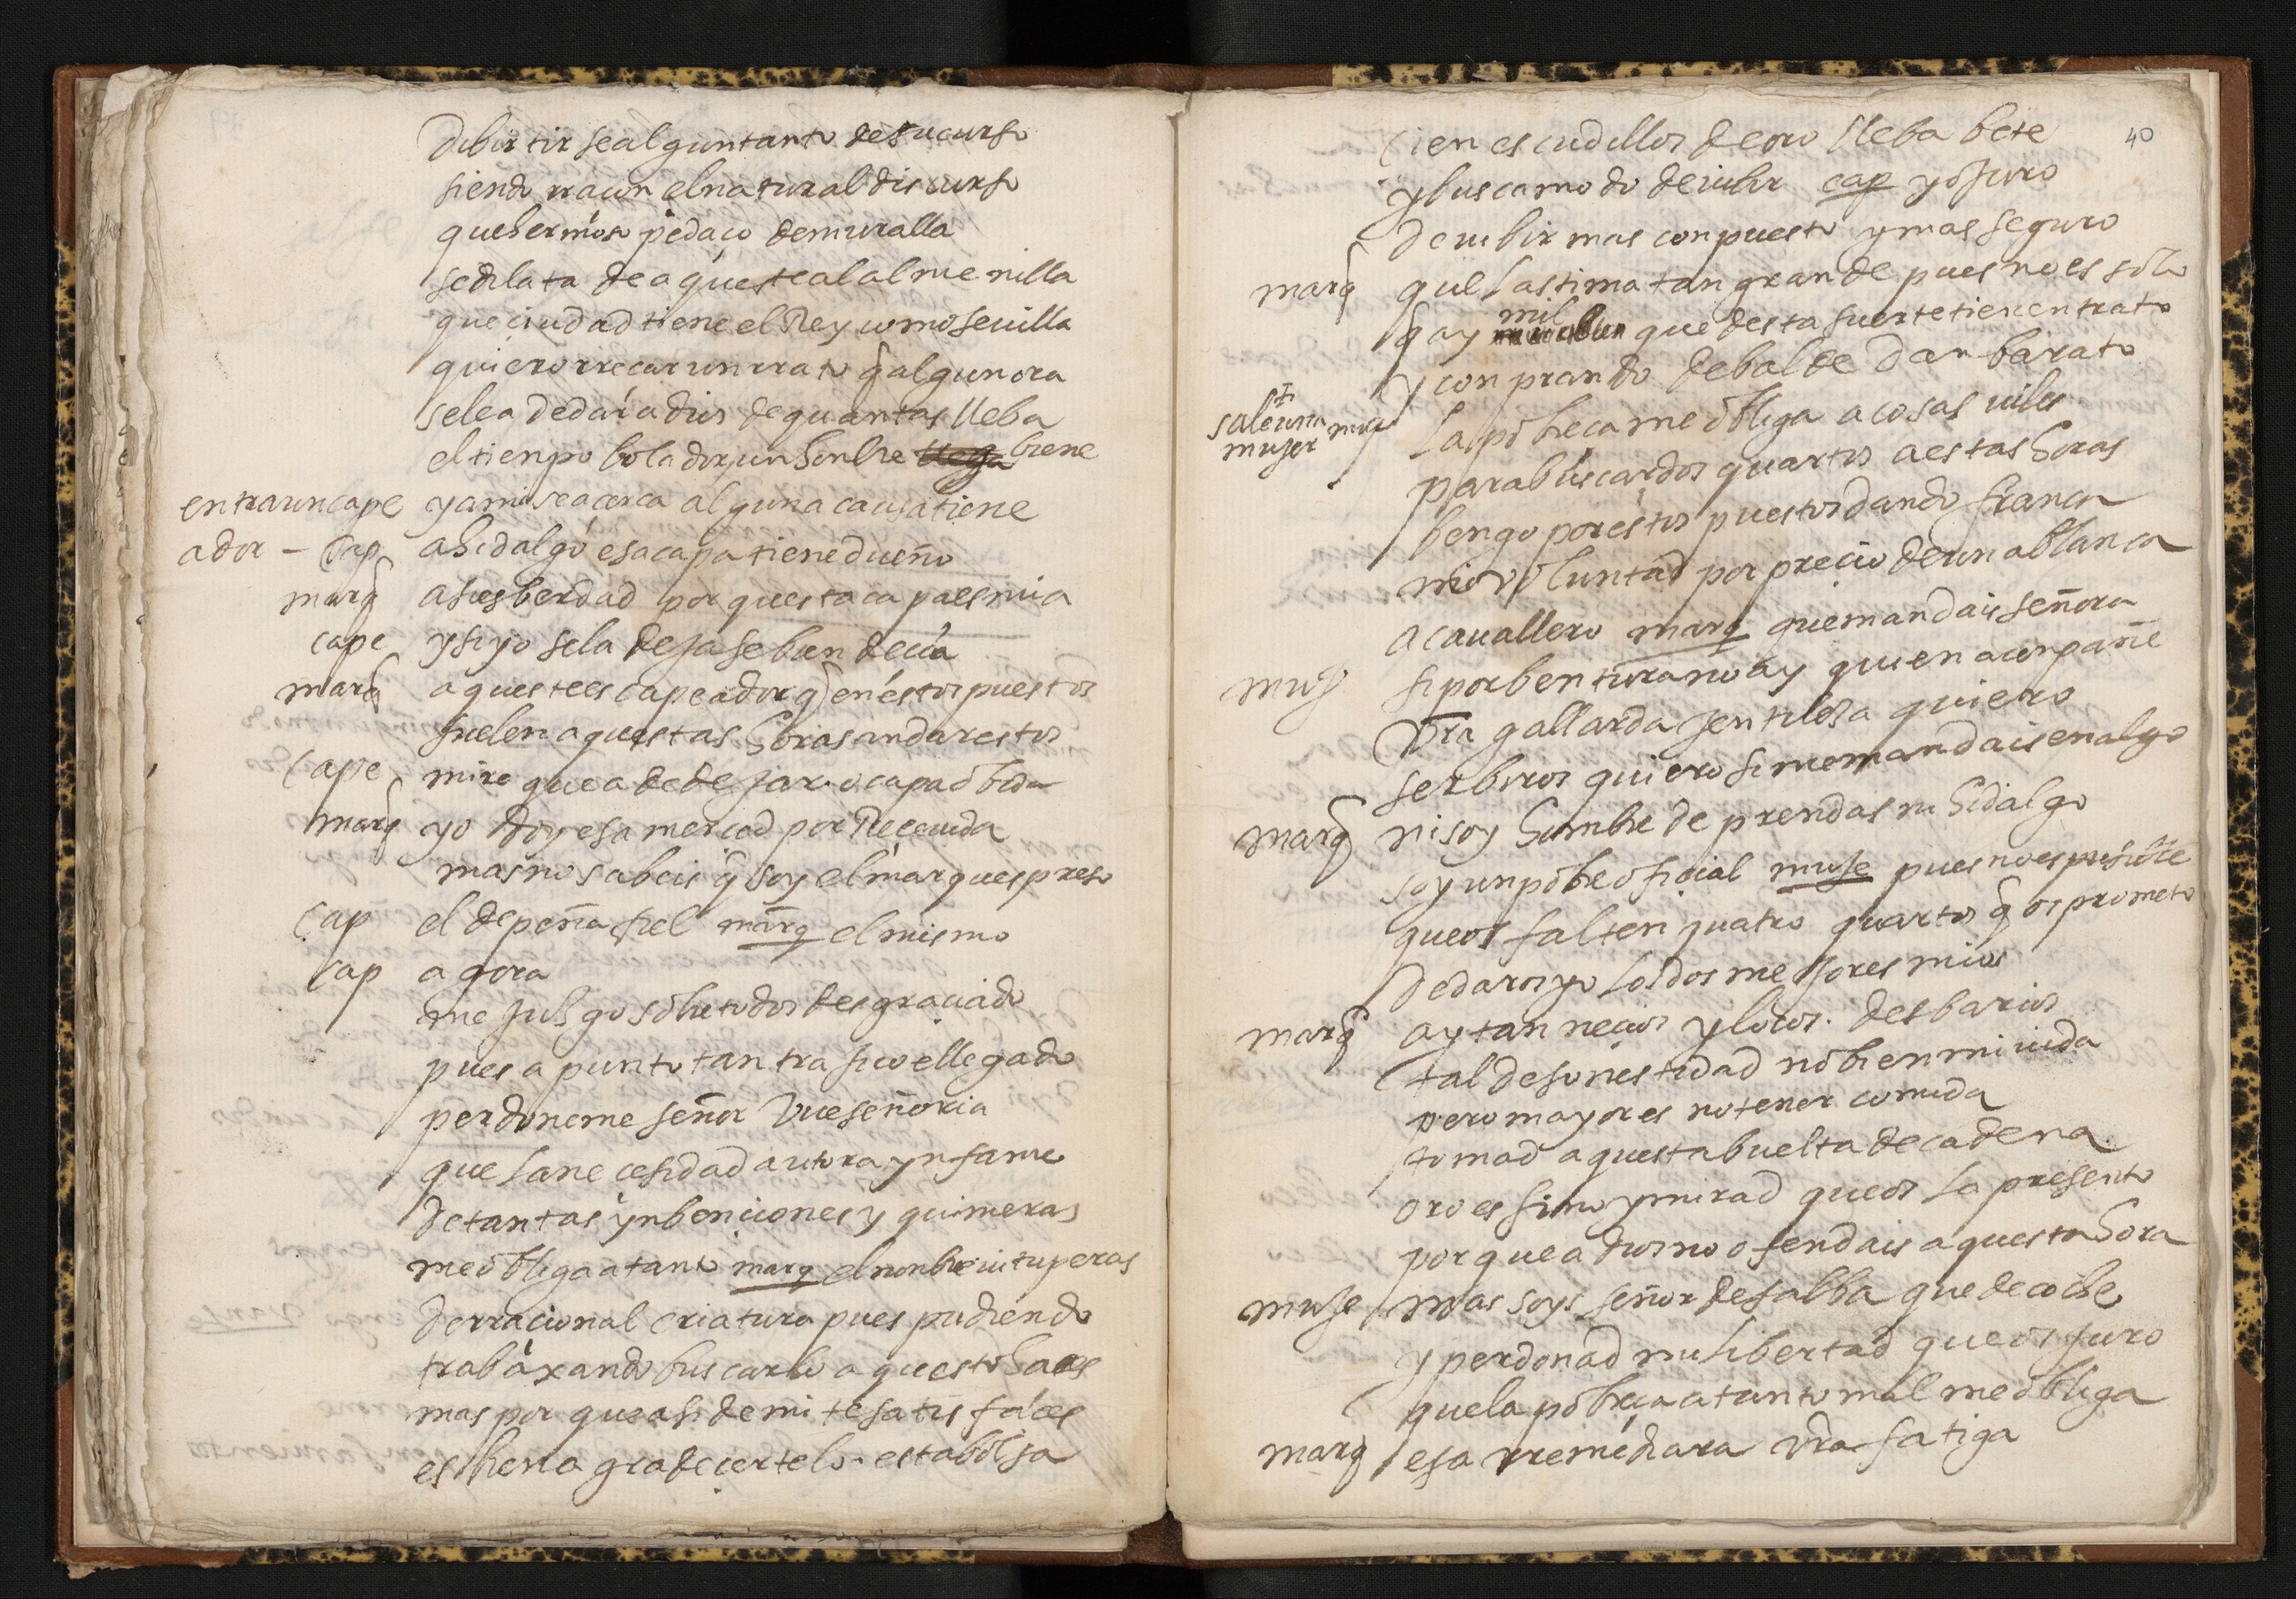 dibirtirse algun tanto de su curso
siendo rraçon el natural discurso
que hermoso pedaço de muralla
se dilata de aqueste al almenilla
que ciudad tiene el Rey como seuilla
quiero rreçar un rrato q algun ora
se le a de dar a dios de quantas lleba
el tienpo bolador, un honbre biene
entra un cape y a mi se acerca alguna causa tiene
ador - Cap a hidalgo esa capa tiene dueño
marq asi es berdad porque esta capa es mia
cape y si yo se la dejase bien deçia
marq aqueste es capeador q en estos puestos
suelen a questas horas andar estos
Cape mire que a de dejar o capa o bida
marq yo doy esa merced por Receuida
mas no sabeis q soy el marques preso
Cap el de peñafiel marq el mismo
Cap agora
me juzgo sobre todos desgraçiado
pues a punto tan trasico e llegado
perdoneme señor Vueseñoria
que la necesidad autora ynfame
de tantas ynbenciones y quimeras
me obliga a tanto marq el nonbre vituperas
de rracional criatura pues pudiendo
trabaxando buscarlo aquesto haçes
mas por que asi de mi te satisfaçes
es bien agradeçertelo. esta bolsa
40
Cien escudillos de oro lleba bete
y busca modo de viuir cap yo juro
de viuir mas conpuesto y mas seguro
marq que lastima tan grande pues no es solo
q ay mil que desta suerte tienen trato
y conprando de balde dan barato
sale una mujer muj La pobreça me obliga a cosas viles
para buscar dos quartos a estas horas
bengo por estos puestos dando franca
mi voluntad por preçio de una blanca
a cauallero marq que mandais señora
muj si por bentura no ay quien aconpañe
vra gallarda jentileça quiero
serbiros quiero si me mandais en algo
marq ni soy hombre de prendas ni hidalgo
soy un pobre ofiçial muje pues no es pusible
que os falten quatro quartos q os prometo
de daros yo los dos mejores mios
marq ay tan neçios y locos. desbarios
tal desonestidad no bi en mi uida
pero mayor es no tener comida
tomad aquesta buelta de cadena
oro es fino y mirad que os la presento
por que a dios no ofendais aquesta hora
muje mas soys señor de salba que de coche
y perdonad mi libertad que os juro
que la pobreça a tanto mal me obliga
marq esa rremediara vra fatiga